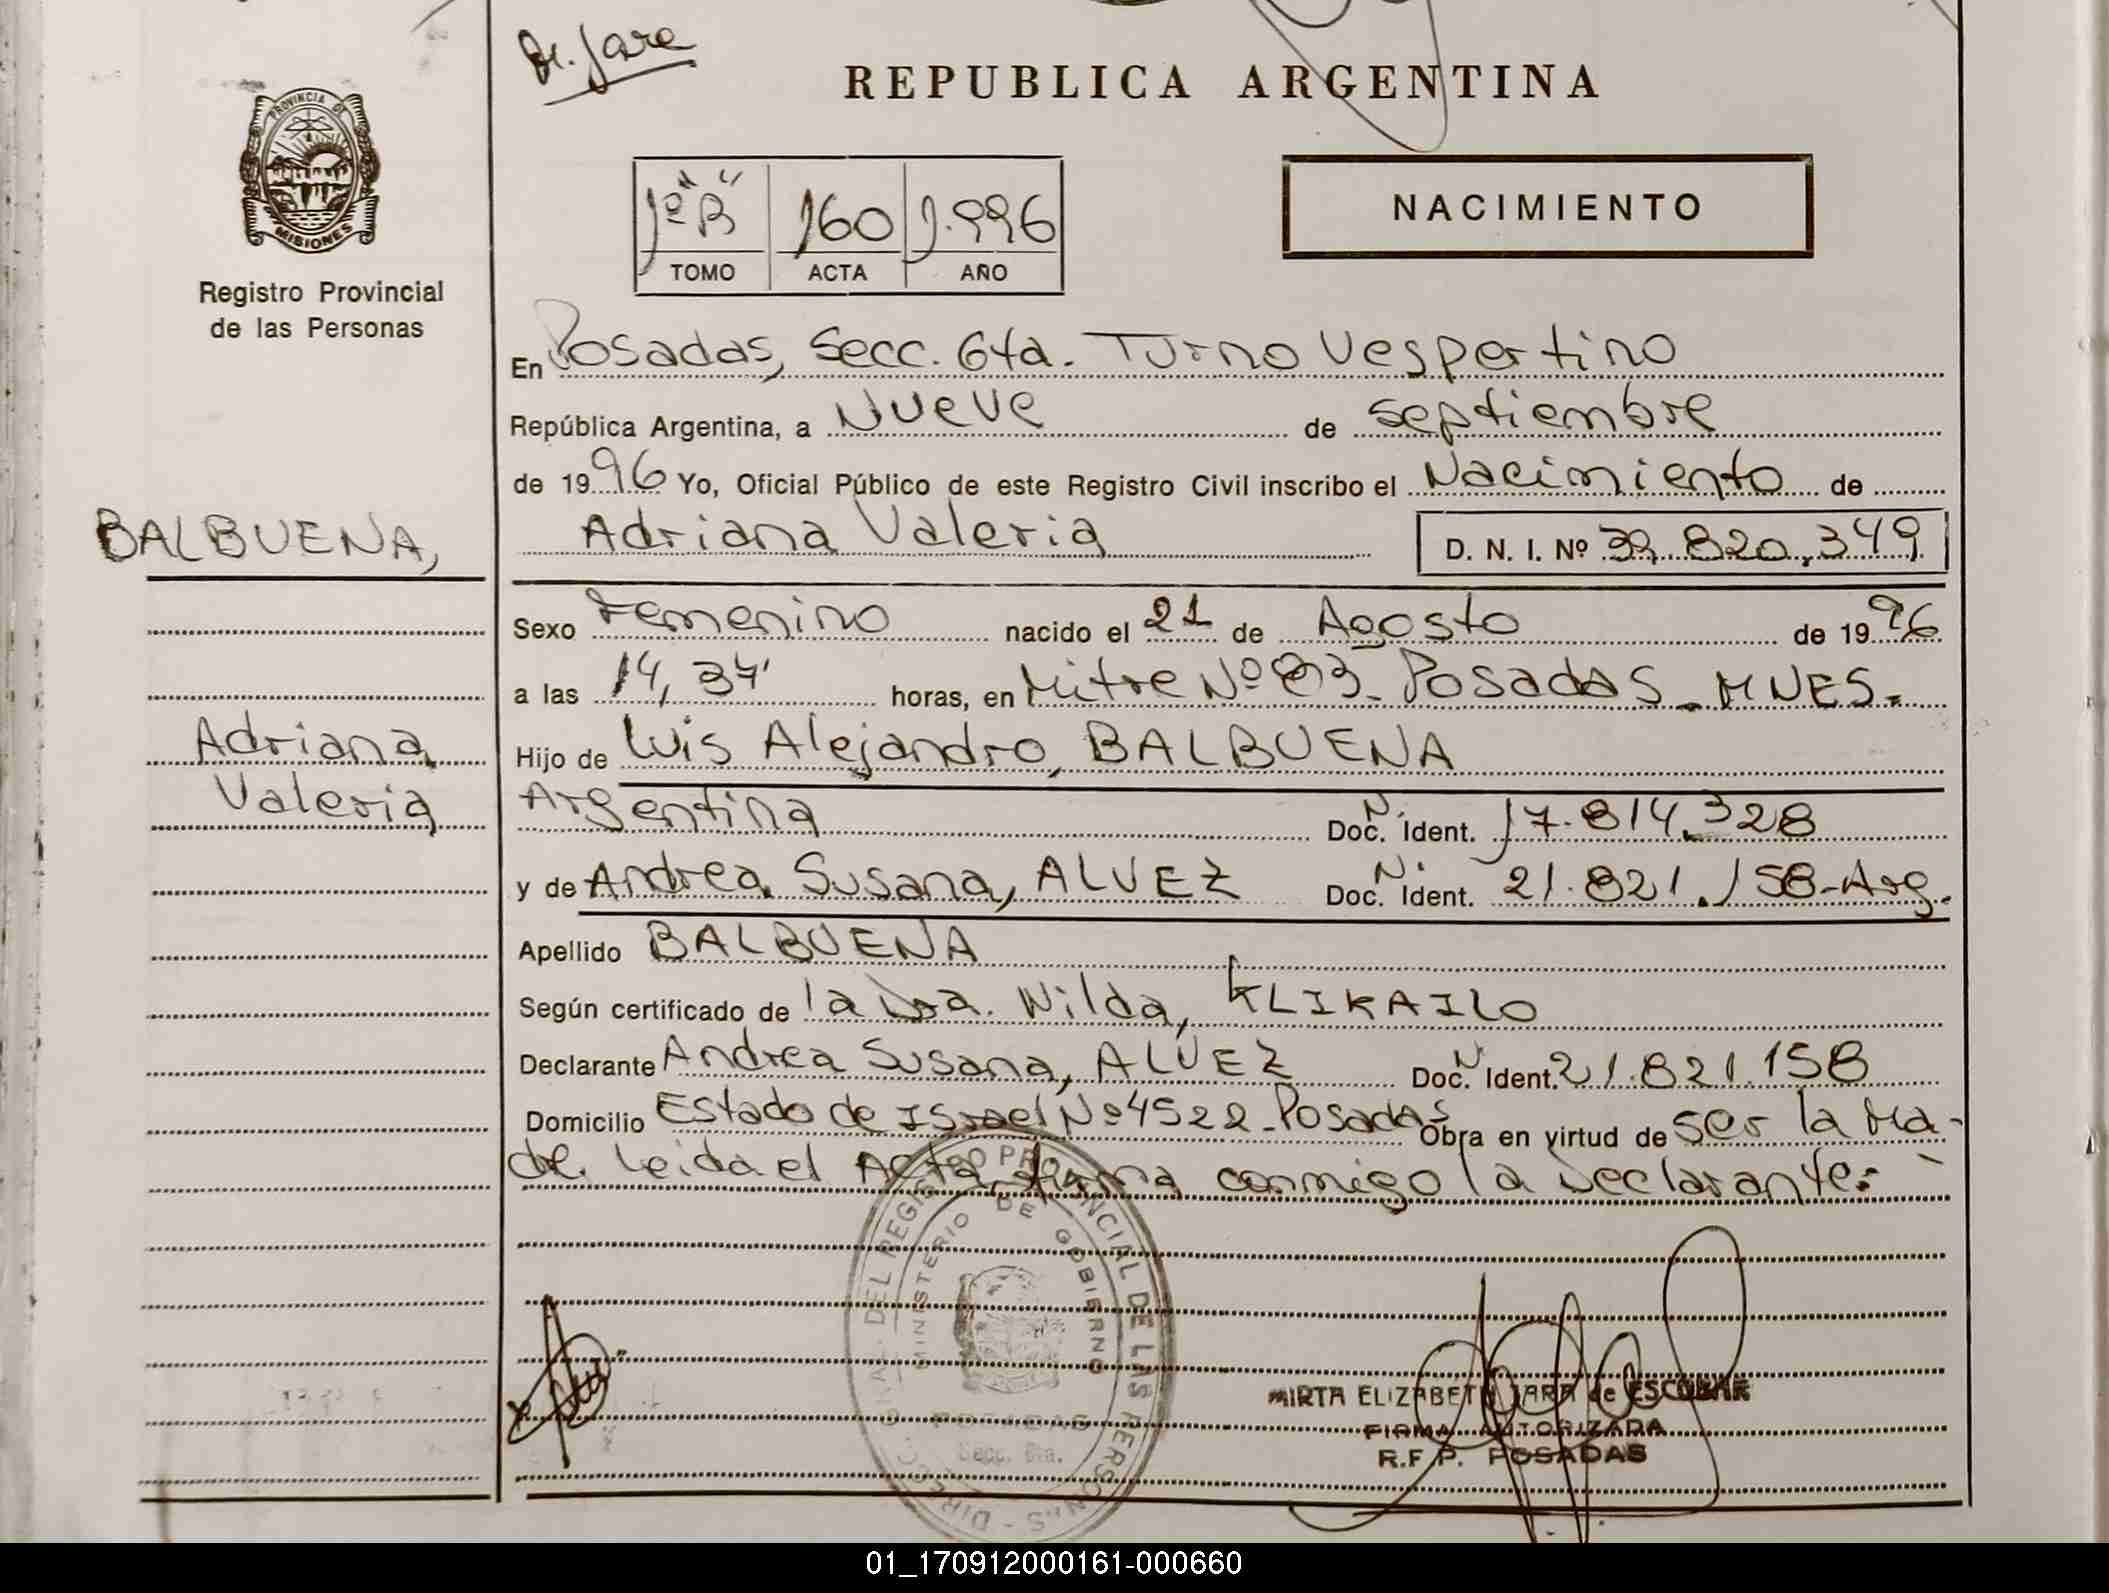 Dr. Jara
REPUBLICA ARGENTINA
PROVINCIA DE
MISIONES
Registro Provincial
de las Personas
1º "B" 160 1.996
TOMO ACTA AÑO
NACIMIENTO
En Posadas, Secc. 6ta. Turno Vespertino
República Argentina, a Nueve de septiembre
de 1996 Yo, Oficial Público de este Registro Civil inscribo el Nacimiento de
BALBUENA,
Adriana Valeria D. N. I. Nº 39.820.349
Sexo Femenino nacido el 21 de Agosto de 1996
a las 14,37' horas, en Mitre Nº 83 - Posadas - MNES.
Adriana
Hijo de Luis Alejandro, BALBUENA
Valeria
Argentina Doc. N. Ident. 17.814.328
y de Andrea Susana, ALVEZ Doc. N. Ident. 21.821.158-Arg.
Apellido BALBUENA
Según certificado de la Dra. Nilda, KLIKAILO
Declarante Andrea Susana, ALVEZ Doc. N Ident. 21.821.158
Domicilio Estado de Israel Nº 4522 - Posadas Obra en virtud de ser la Ma-
dre. Leida el Acta, firma conmigo la Declarante.-
DIREC. GRAL. DEL REGISTRO PROVINCIAL DE LAS PERSONAS
MINISTERIO DE GOBIERNO
POSADAS
Secc. 6ta.
MIRTA ELIZABETH JARA de ESCOBAR
FIRMA AUTORIZADA
R.F.P. POSADAS
01_170912000161-000660